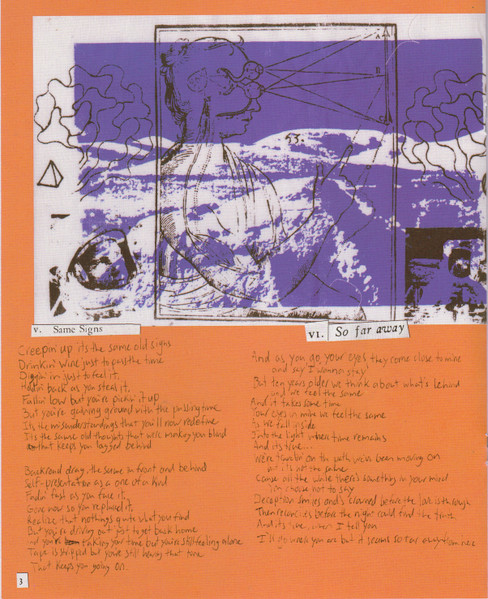 A
B
53.
v. Same Signs
Creepin up its the same old signs
Drinkin' wine just to pass the time
Diggin' in just to feel it.
Holdin' back as you steal it.
Fallin' low but you're pickin' it up
But you're gaining ground with the passing time
Its the misunderstandings that you'll now redefine
Its the same old thoughts that were making you blind
that keeps you lagged behind
Backroad drag, the same in front and behind
Self-presentation as a one of a kind
Fadin' fast as you take it,
Gone now so you replace it,
Realize that nothing's quite what you find
But you're driving out just to get back home
And you're taking your time but you're still feeling alone
Tape is stripped but you're still hearing that tone
Just keeps you going on.
3
VI. So far away
And as you go your eyes they come close to mine
and say I wanna stay
But ten years older we think about what's behind
and we feel the same
And it takes some time
Your eyes in mine we feel the same
So we fall inside
Into the light when time remains
And its true...
We're travelin' on the path we've been moving on
but its not the same
Cause all the while there's something in your mind
You choose not to say
Deception smiles and's around before the lie is through
Then reconciles before the night could find the truth
And its time when I tell you
I'll go when you are but it seems so far away from me